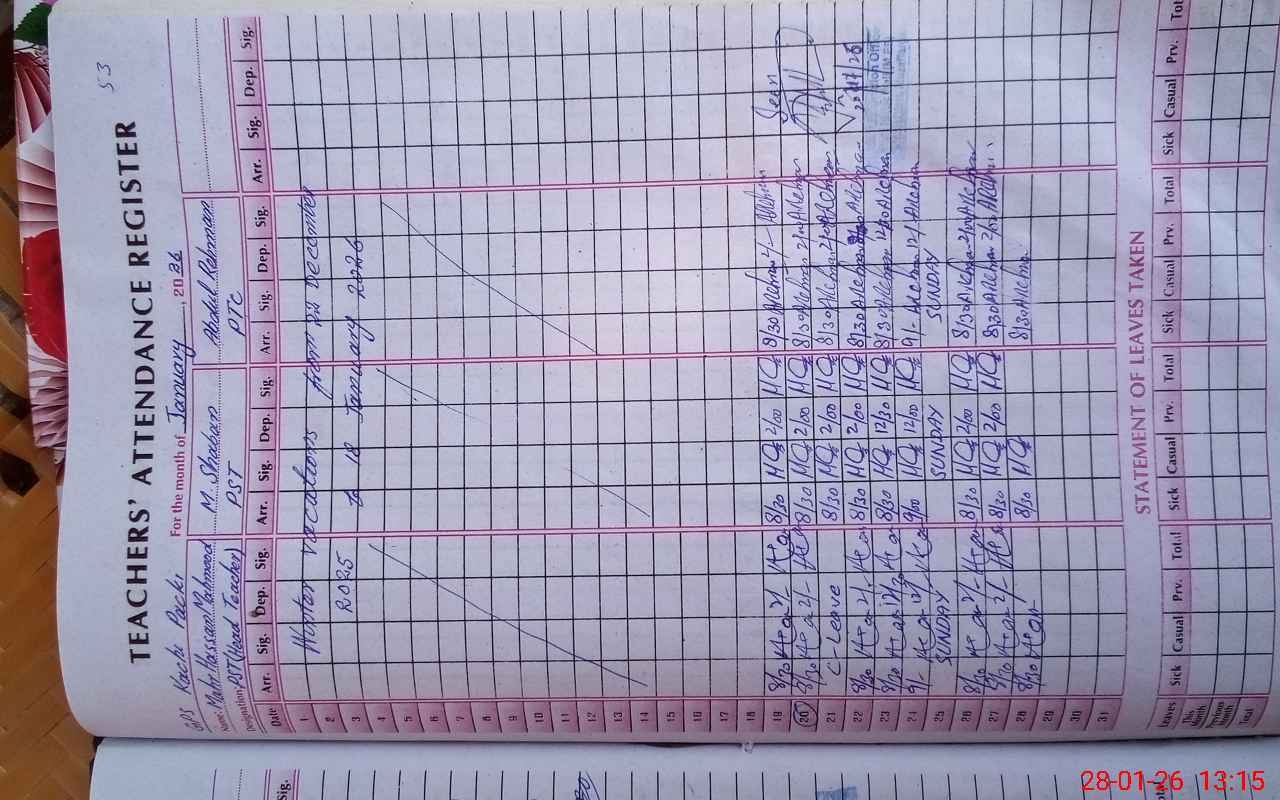 53
TEACHERS' ATTENDANCE REGISTER
GPS Kachi Packi For the month of January, 2026
Name: Mahr Hassan Mahmood M. Shaban Abdul Rehman
Designation: PST (Head Teacher) PST PTC
Date Arr. Sig. Dep. Sig. Arr. Sig. Dep. Sig. Arr. Sig. Dep. Sig. Arr. Sig. Dep. Sig.
1 Winter vacations from December
2 2025 to 18 January 2026
3
4
5
6
7
8
9
10
11
12
13
14
15
16
17
18
19 8/30 2/- 8/30 2/00 8/30 2/- Seen
20 8/30 2/- 8/30 2/00 8/30 2/00
21 C-Leave 8/30 2/00 8/30 2/00
22 8/30 2/- 8/30 2/00 8/30
23 8/30 12/30 8/30 12/30 8/30 12/30
24 9/- 12/- 9/00 12/00 9/- 12/-
25 SUNDAY SUNDAY SUNDAY
26 8/30 2/- 8/30 2/00 8/30 2/00
27 8/30 2/- 8/30 2/00 8/30 2/00
28 8/30 8/30 8/30
29
30
31
STATEMENT OF LEAVES TAKEN
Leaves Sick Casual Prv. Total Sick Casual Prv. Total Sick Casual Prv. Total Sick Casual Prv. Tot
This Month
Previous Month
Total
Sig.
28-01-26 13:15